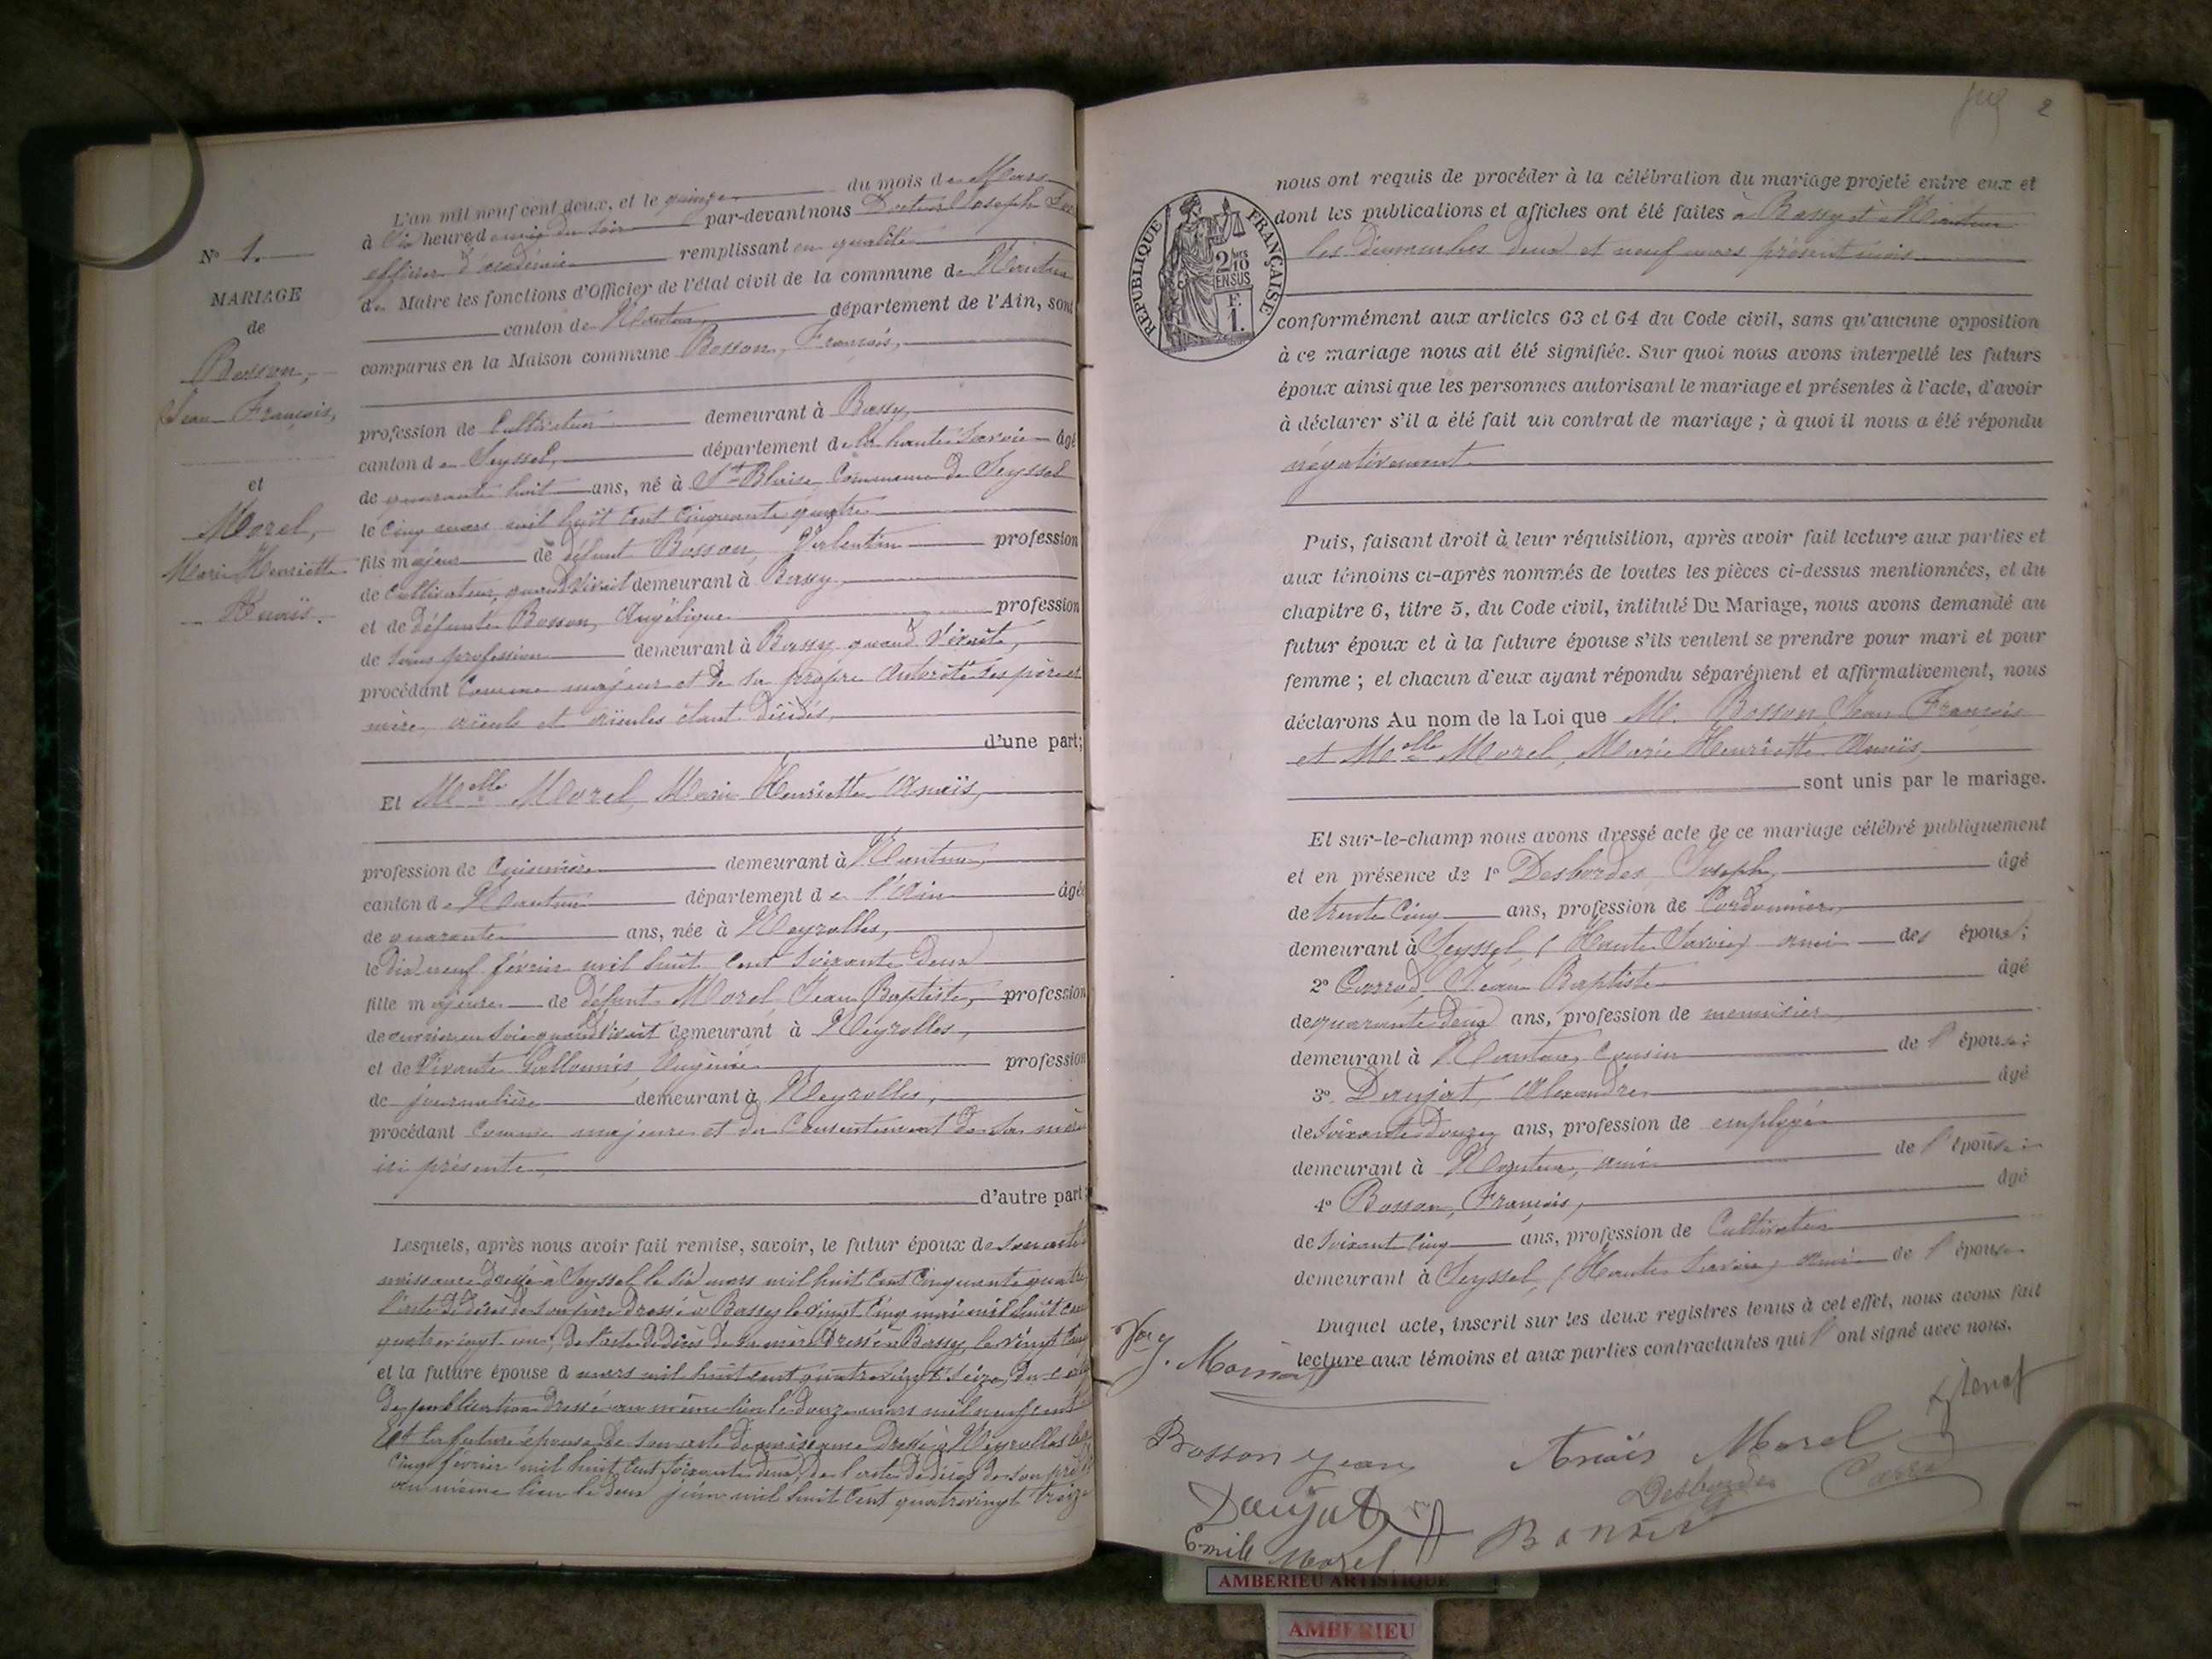 L'an mil neuf cent deux, et le quinze du mois de Mars
à six heure demie du soir par-devant nous Docteur Joseph
officier d'académie remplissant en qualité
de Maire les fonctions d'Officier de l'état civil de la commune de Nantua
canton de Nantua, département de l'Ain, sont
comparus en la Maison commune Bosson, François,
N° 1.
MARIAGE
de
Bosson,
Jean François,
et
Morel,
Marie Henriette
Anaïs.
profession de Cultivateur demeurant à Bassy,
canton de Seyssel, département de la haute Savoie âgé
de quarante huit ans, né à St Blaise, Commune de Seyssel
le cinq mars mil huit cent cinquante quatre
fils majeur de défunt Bosson, Valentin profession
de Cultivateur, quand vivait demeurant à Bassy,
et de défunte Bosson, Angélique profession
de sans profession demeurant à Bassy quand vivait,
procédant Comme majeur et de sa propre autorité ses père et
mère, aïeuls et aïeules étant décédés,
d'une part;
Et Melle Morel, Marie Henriette Anaïs,
profession de Cuisinière demeurant à Nantua,
canton de Nantua département de l'Ain âgée
de quarante ans, née à Neyrolles,
le dix neuf février mil huit cent soixante deux
fille majeure de défunt Morel, Jean Baptiste, profession
de ouvrier en soie quand vivait demeurant à Neyrolles,
et de vivante Eugénie profession
de journalière demeurant à Neyrolles,
procédant Comme majeure et du Consentement de sa mère
ici présente,
d'autre part;
Lesquels, après nous avoir fait remise, savoir, le futur époux de son acte de
naissance dressé à Seyssel le six mars mil huit cent cinquante quatre
l'acte de décès de son père dressé à Bassy le vingt cinq mai mil huit cent
quatre vingt un, de l'acte de décès de sa mère dressé à Bassy, le vingt
et la future épouse d mars mil huit cent quatre vingt seize, du
de publication dressé au même lieu le douze mars mil neuf cent
Et la future épouse de son acte de naissance dressé à Neyrolles le
cinq février mil huit cent soixante deux, de l'acte de décès de son père
au même lieu le deux juin mil huit cent quatre vingt treize
2
RÉPUBLIQUE FRANÇAISE
2/10
EN SUS
F.
1.
nous ont requis de procéder à la célébration du mariage projeté entre eux et
dont les publications et affiches ont été faites à Bassy et à Nantua
les dimanches deux et neuf mars présent mois
conformément aux articles 63 et 64 du Code civil, sans qu'aucune opposition
à ce mariage nous ait été signifiée. Sur quoi nous avons interpellé les futurs
époux ainsi que les personnes autorisant le mariage et présentes à l'acte, d'avoir
à déclarer s'il a été fait un contrat de mariage ; à quoi il nous a été répondu
négativement
Puis, faisant droit à leur réquisition, après avoir fait lecture aux parties et
aux témoins ci-après nommés de toutes les pièces ci-dessus mentionnées, et du
chapitre 6, titre 5, du Code civil, intitulé Du Mariage, nous avons demandé au
futur époux et à la future épouse s'ils veulent se prendre pour mari et pour
femme ; et chacun d'eux ayant répondu séparément et affirmativement, nous
déclarons Au nom de la Loi que M. Bosson, Jean François
et Melle Morel, Marie Henriette Anaïs,
sont unis par le mariage.
Et sur-le-champ nous avons dressé acte de ce mariage célébré publiquement
et en présence de 1° Desbordes, Joseph, âgé
de trente cinq ans, profession de Cordonnier,
demeurant à Seyssel, (Haute Savoie) ami des époux;
2° Carrod, Jean Baptiste âgé
de quarante deux ans, profession de menuisier
demeurant à Nantua, Cousin de l'épouse;
3° Daujat, Alexandre âgé
de soixante douze ans, profession de employé
demeurant à Nantua, ami de l'épouse;
4° Bosson, François, âgé
de soixante cinq ans, profession de Cultivateur
demeurant à Seyssel, (Haute Savoie) ami de l'épouse
Duquel acte, inscrit sur les deux registres tenus à cet effet, nous avons fait
lecture aux témoins et aux parties contractantes qui l'ont signé avec nous.
Bosson Jean
Anaïs Morel
Desbordes
Daujat
Emile Morel
AMBERIEU ARTISTIQUE
AMBERIEU